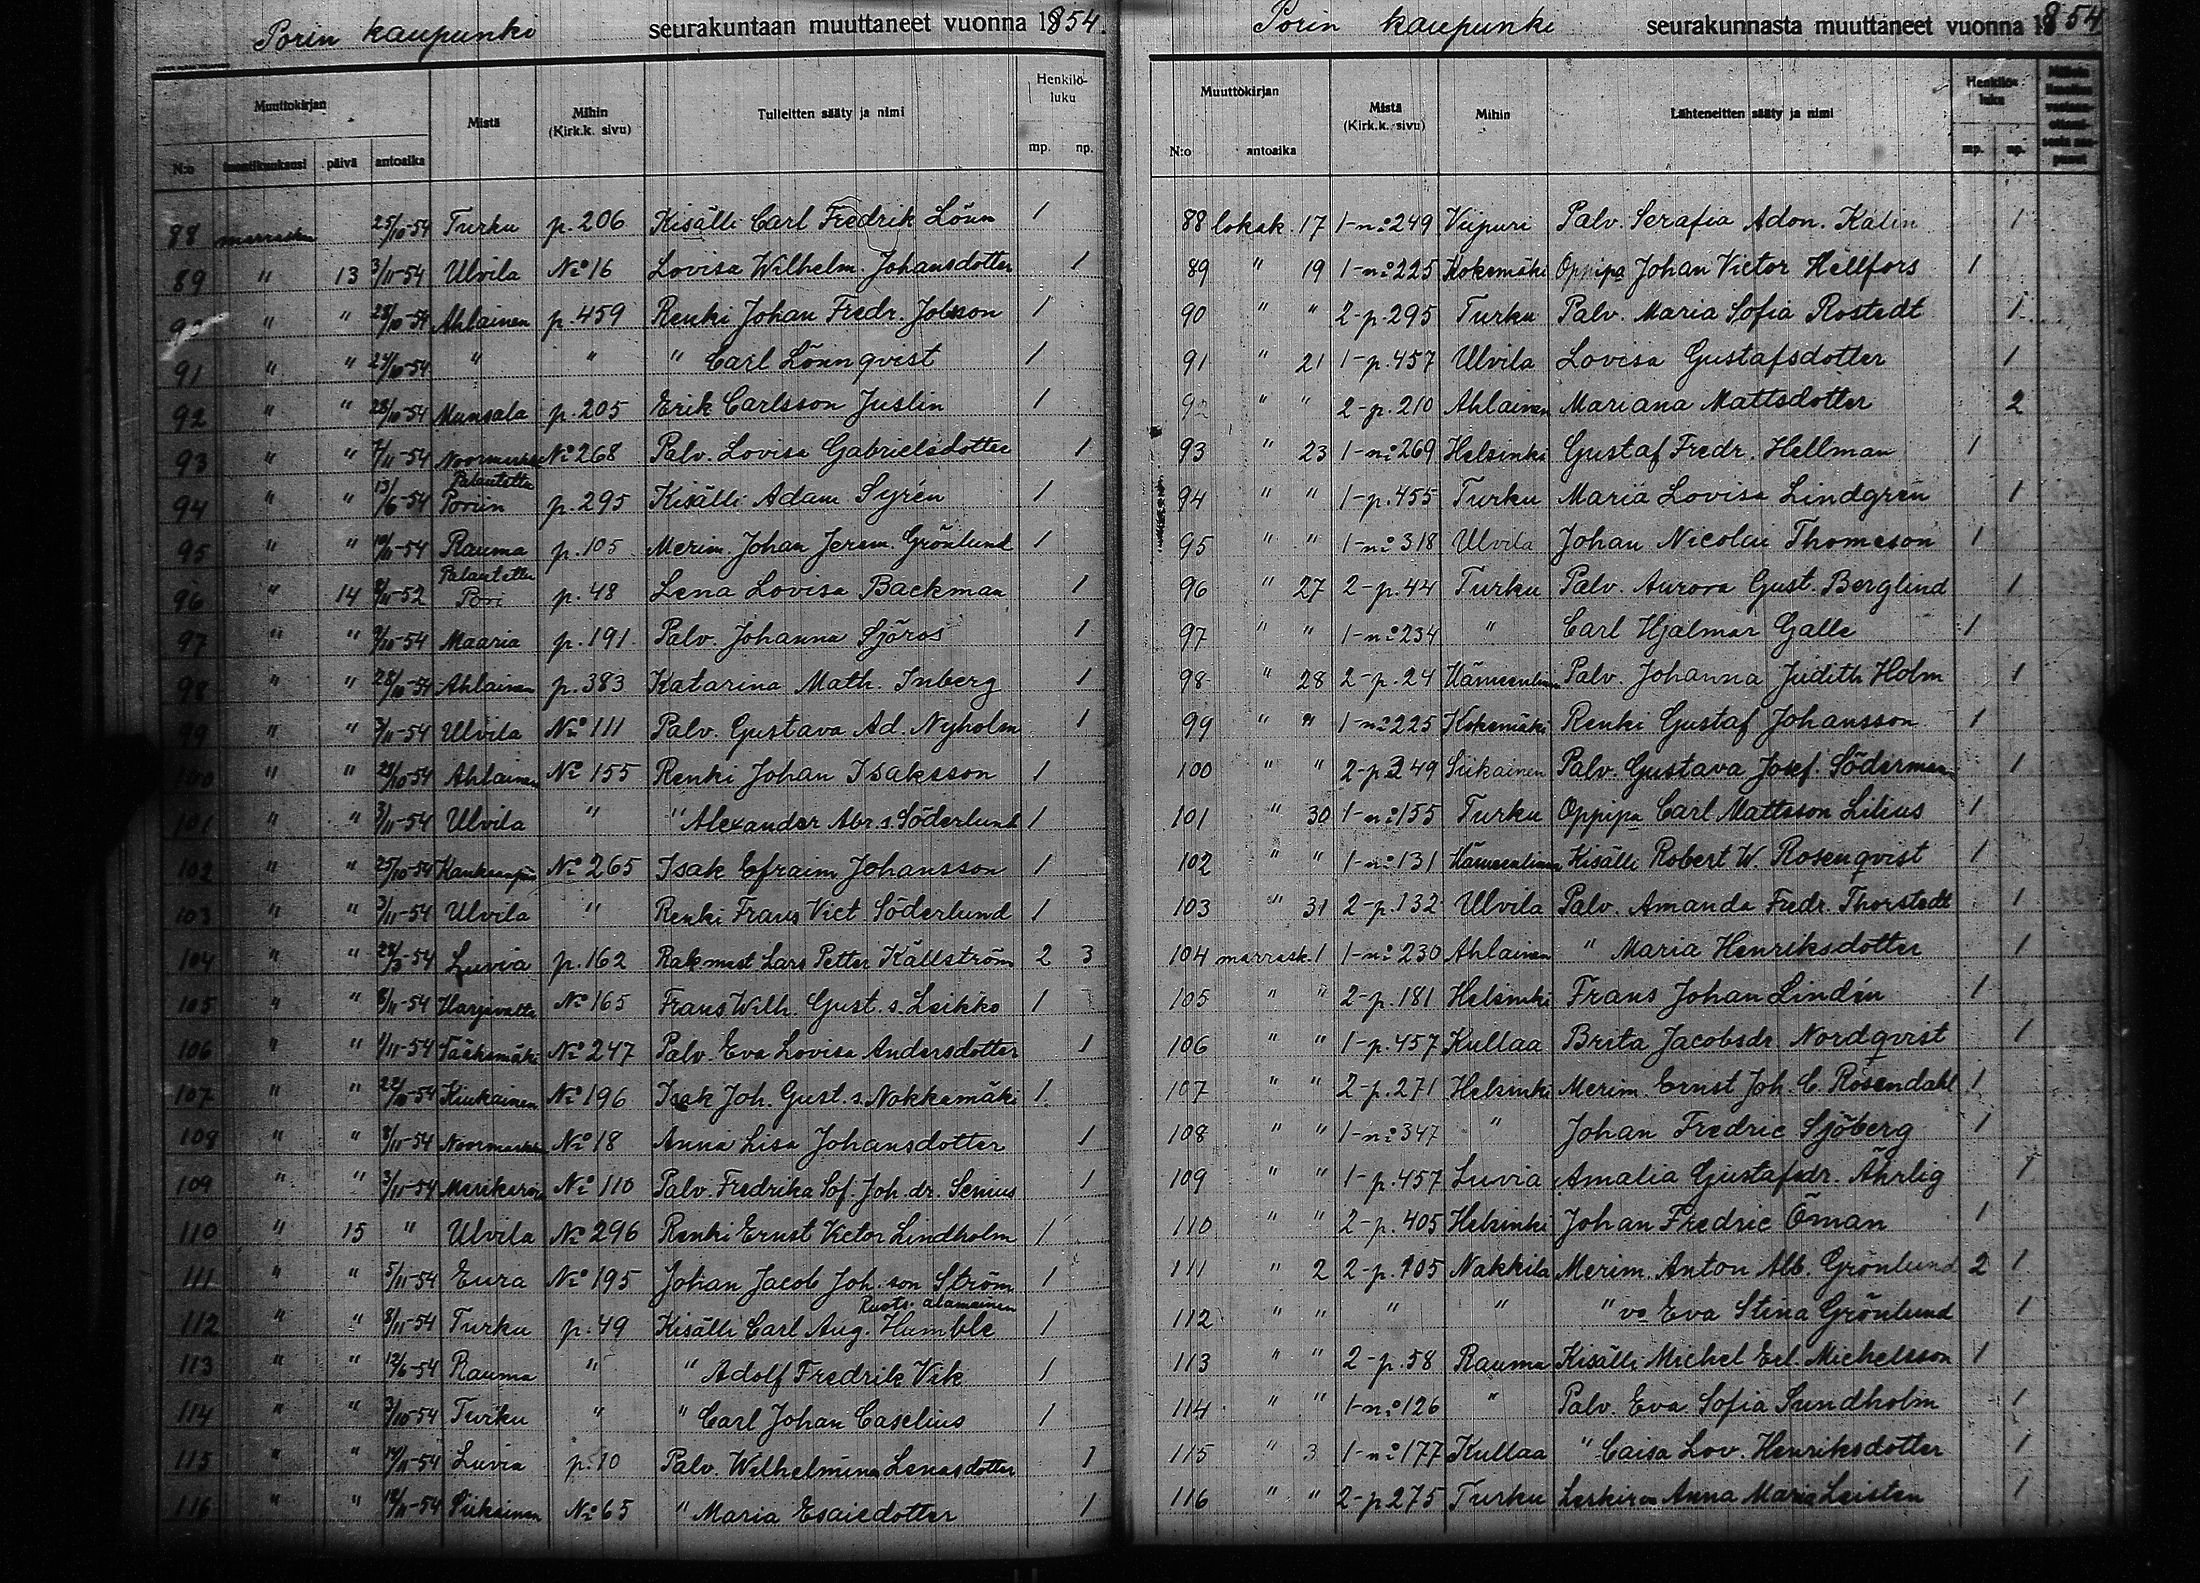 Porin kaupunki seurakuntaan muuttaneet vuonna 1854.
Muuttokirjan Mistä Mihin (Kirk.k. sivu) Tulleitten sääty ja nimi Henkilö-luku
N:o päivä antoaika mp. np.
88 marrask. 25/10-54 Turku p. 206 Kisälli Carl Fredrik Lönn 1
89 " 13 3/11-54 Ulvila No 16 Lovisa Wilhelm. Johansdotter 1
90 " " 28/10-54 Ahlainen p. 459 Renki Johan Fredr. Jobsson 1
91 " " 24/10-54 " " " Carl Lönnqvist 1
92 " " 28/10-54 Munsala p. 205 Erik Carlsson Juslin 1
93 " " 7/11-54 Noormarkku No 268 Palv. Lovisa Gabrielsdotter 1
94 " " 13/6-54 Palautettu Poriin p. 295 Kisälli Adam Syrén 1
95 " " 10/11-54 Rauma p. 105 Merim. Johan Jerem. Grönlund 1
96 " 14 9/11-52 Palautettu Pori p. 48 Lena Lovisa Backman 1
97 " " 9/10-54 Maaria p. 191 Palv. Johanna Sjöros 1
98 " " 28/10-54 Ahlainen p. 383 Katarina Math. Inberg 1
99 " " 3/11-54 Ulvila No 111 Palv. Gustava Ad. Nyholm 1
100 " " 28/10-54 Ahlainen No 155 Renki Johan Isaksson 1
101 " " 3/11-54 Ulvila " " Alexander Abr.s. Söderlund 1
102 " " 25/10-54 Kankaanpää No 265 Isak Efraim Johansson 1
103 " " 3/11-54 Ulvila " Renki Frans Vict. Söderlund 1
104 " " 28/3-54 Luvia p. 162 Rak.mest Lars Petter Källström 2 3
105 " " 8/11-54 Harjavalta No 165 Frans Wilh. Gust. s. Leikko 1
106 " " 1/11-54 Sääksmäki No 247 Palv. Eva Lovisa Andersdotter 1
107 " " 22/10-54 Kiukainen No 196 Isak Joh. Gust. s. Nokkamäki 1
108 " " 8/11-54 Noormarkku No 18 Anna Lisa Johansdotter 1
109 " " 3/11-54 Merikarvia No 110 Palv. Fredrika Sof. Joh. dr. Senius 1
110 " 15 " Ulvila No 296 Renki Ernst Victor Lindholm 1
111 " " 5/11-54 Eura No 195 Johan Jacob Joh. son Ström 1
112 " " 8/11-54 Turku p. 49 Kisälli Carl Aug. Humble Ruots. alamainen 1
113 " " 12/6-54 Rauma " " Adolf Fredrik Vik 1
114 " " 3/10-54 Turku " " Carl Johan Caselius 1
115 " " 14/11-54 Luvia p. 10 Palv. Wilhelmina Lenasdotter 1
116 " " 12/11-54 Siikainen No 65 " Maria Esaiedotter 1
Porin kaupunki seurakunnasta muuttaneet vuonna 1854
Muuttokirjan Mistä (Kirk.k. sivu) Mihin Lähteneitten sääty ja nimi Henkilö-luku
N:o antoaika mp. np.
88 lokak. 17 1-no 249 Viipuri Palv. Serafia Adon. Kalin 1
89 " 19 1-no 225 Kokemäki Oppipa Johan Victor Hellfors 1
90 " " 2-p. 295 Turku Palv. Maria Sofia Rostedt 1
91 " 21 1-p. 457 Ulvila Lovisa Gustafsdotter 1
92 " " 2-p. 210 Ahlainen Mariana Mattsdotter 2
93 " 23 1-no 269 Helsinki Gustaf Fredr. Hellman 1
94 " " 1-p. 455 Turku Maria Lovisa Lindgrén 1
95 " " 1-no 318 Ulvila Johan Nicolai Thomeson 1
96 " 27 2-p. 44 Turku Palv. Aurora Gust. Berglind 1
97 " " 1-no 234 " Carl Hjalmar Galle 1
98 " 28 2-p. 24 Hämeenlinna Palv. Johanna Judith Holm 1
99 " " 1-no 225 Kokemäki Renki Gustaf Johansson 1
100 " " 2-p 249 Siikainen Palv. Gustava Josef. Söderman 1
101 " 30 1-no 155 Turku Oppipa Carl Mattsson Lilius 1
102 " " 1-no 131 Hämeenlinna Kisälli Robert W. Rosenqvist 1
103 " 31 2-p. 132 Ulvila Palv. Amanda Fredr. Thorstedt 1
104 marrask. 1 1-no 230 Ahlainen " Maria Henriksdotter 1
105 " " 2-p. 181 Helsinki Frans Johan Lindén 1
106 " " 1-p. 457 Kullaa Brita Jacobsdr. Nordqvist 1
107 " " 2-p. 271 Helsinki Merim. Ernst Joh. C. Rosendahl 1
108 " " 1-no 347 " Johan Fredric Sjöberg 1
109 " " 1-p. 457 Luvia Amalia Gustafsdr. Ährlig 1
110 " " 2-p. 405 Helsinki Johan Fredric Öman 1
111 " 2 2-p. 105 Nakkila Merim. Anton Alb. Grönlund 2 1
112 " " " " " vo Eva Stina Grönlund 1
113 " " 2-p. 58 Rauma Kisälli Michel Erl. Michelsson 1
114 " " 1-no 126 " Palv. Eva Sofia Sundholm 1
115 " 3 1-no 177 Kullaa " Caisa Lov. Henriksdotter 1
116 " " 2-p 275 Turku Leskirva Anna Maria Leisten 1